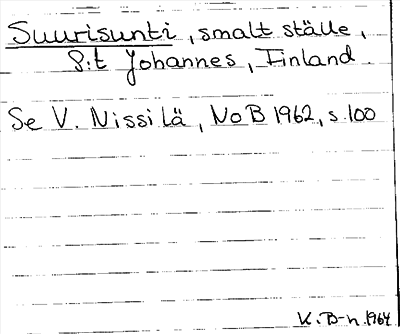 Suurisunti, smalt ställe,
S:t Johannes, Finland.
Se V. Nissilä, NoB 1962, s. 100
K. B-n. 1964